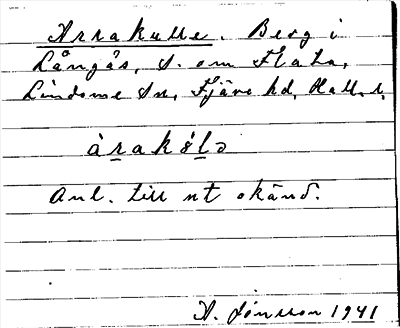 Arrakulle. Berg i
Långås, S. om Flata,
Lindome sn, Fjäre hd, Hall. l.
àrakólə
Anl. till nt okänd.
A. Jönsson 1941